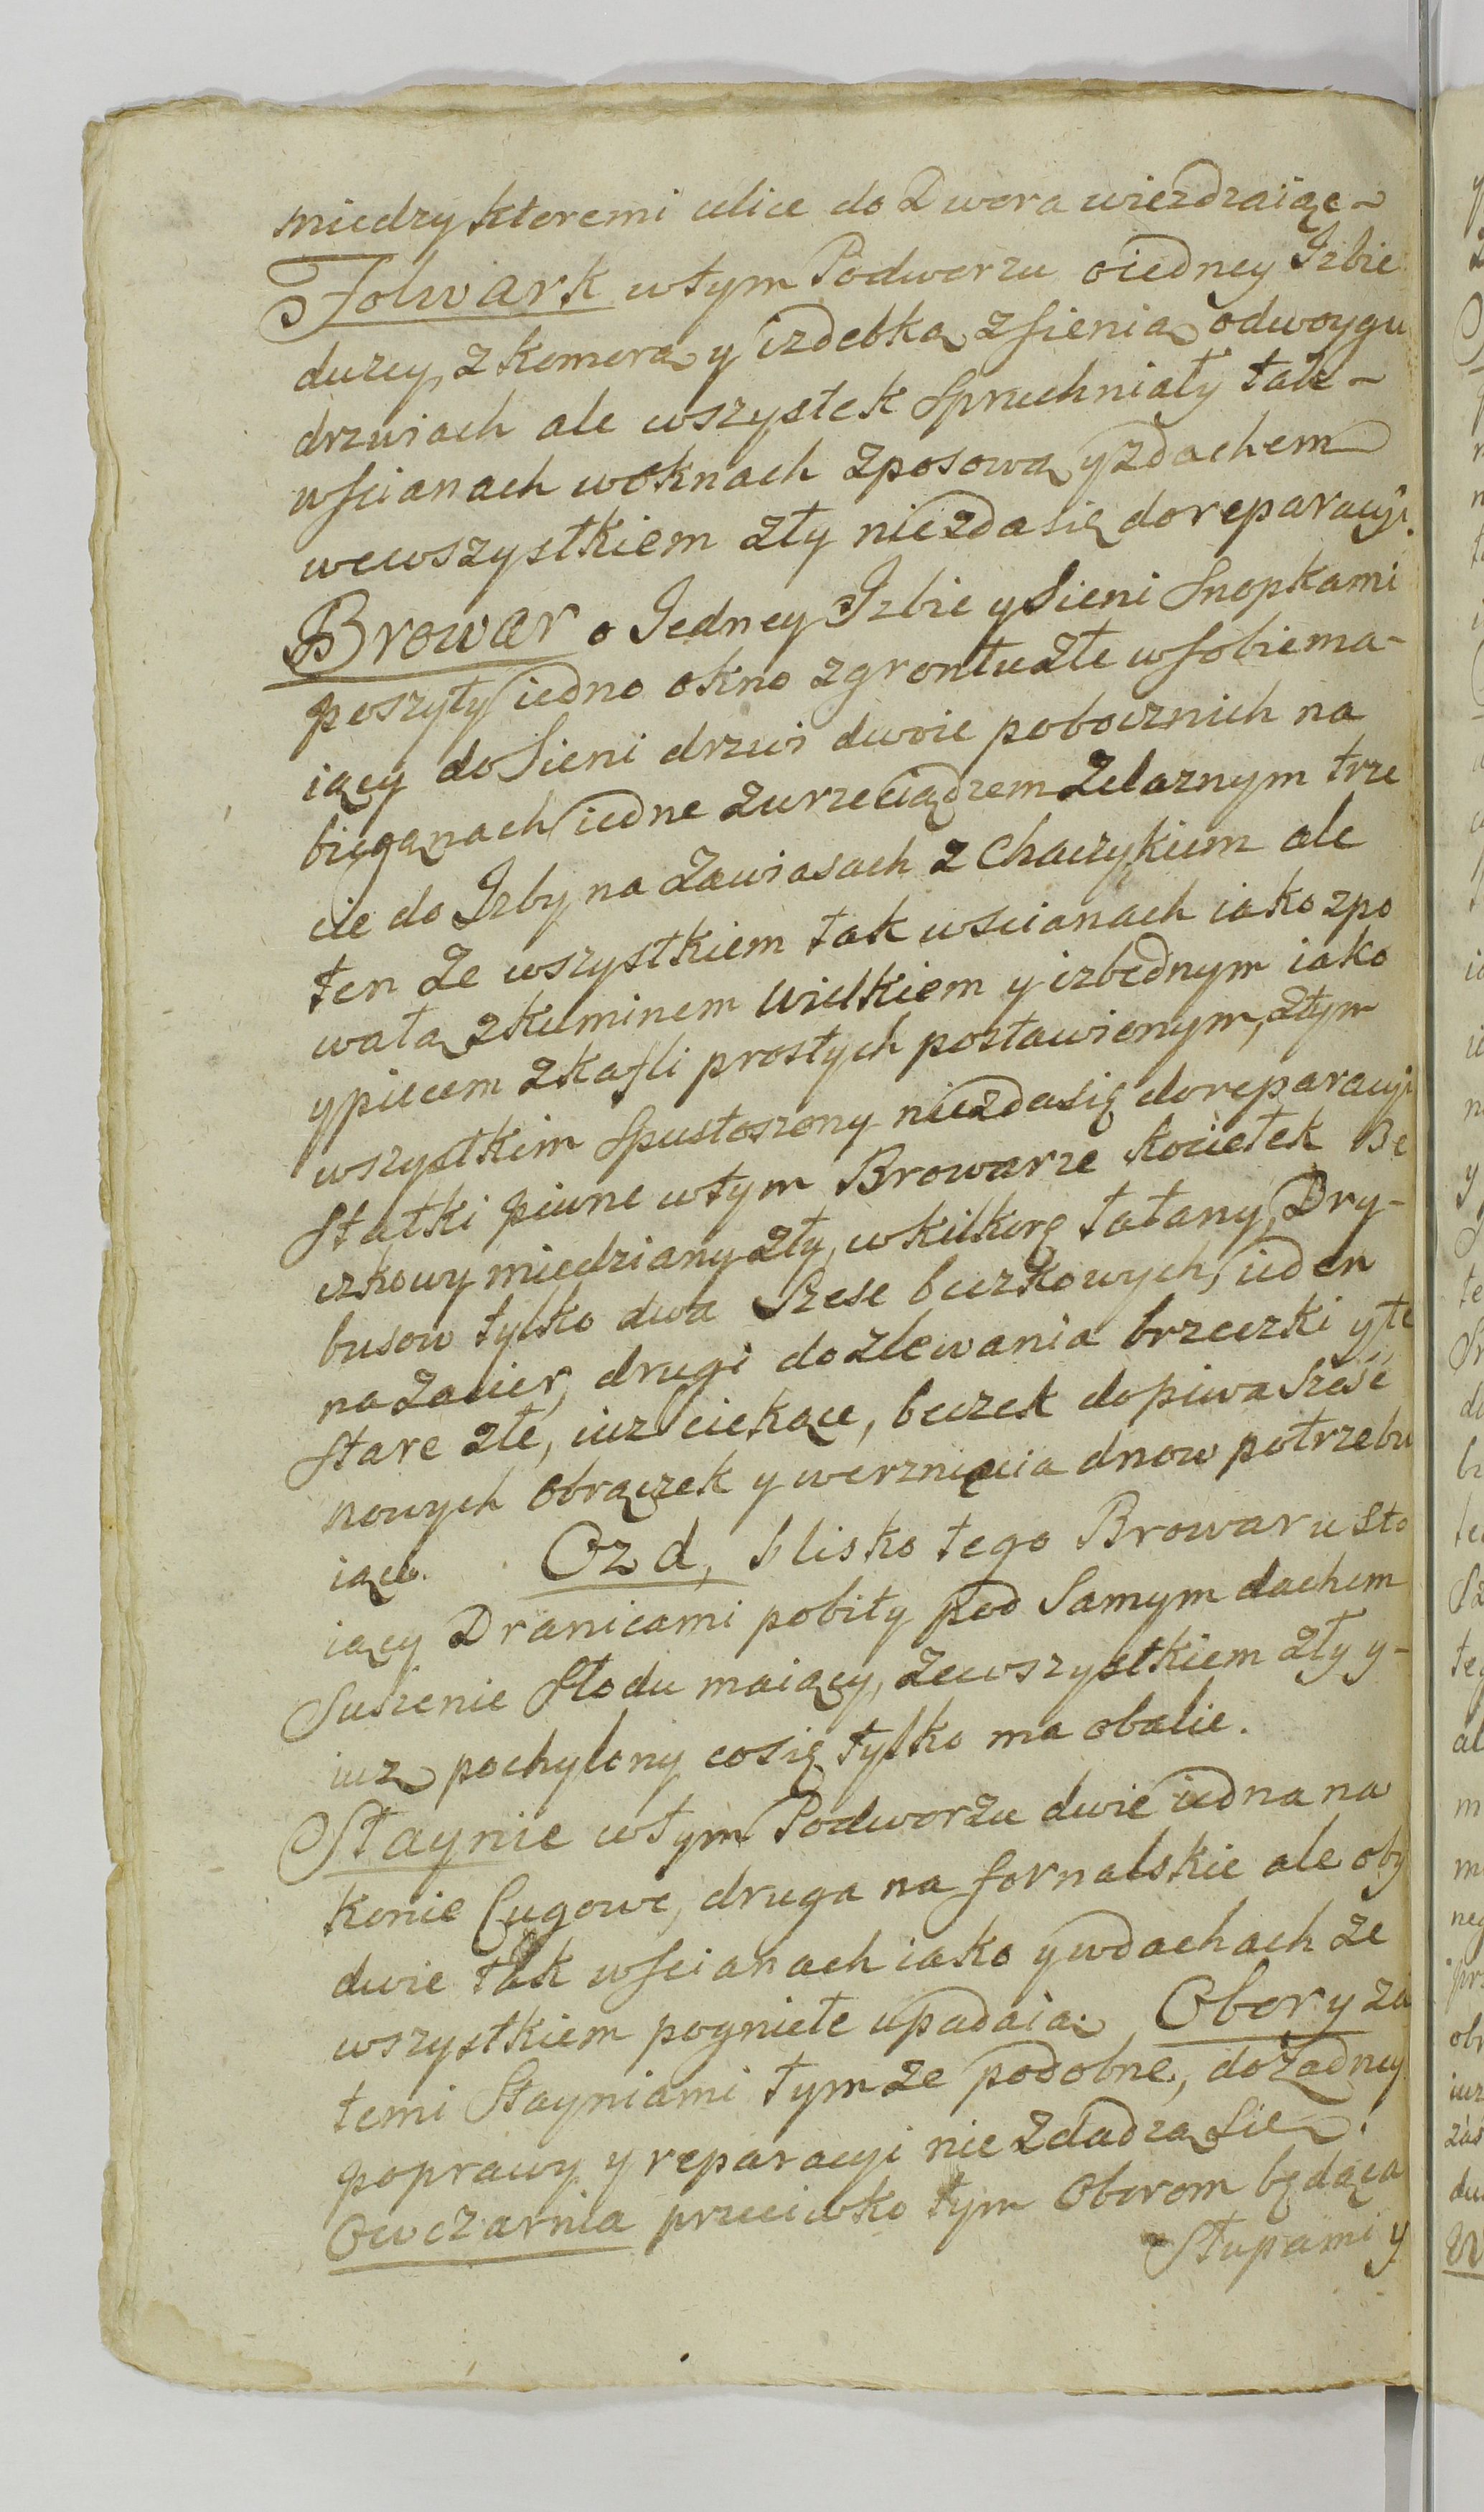 miedzy ktoremi ulice do Dwora wiezdzaiące-
Folwark wtym Podworzu oiedney Izbie
duzey, z komorą y izdebką zsienią odwoygu
drzwiach ale wszystek spruchniały tak-
wścianach woknach zposową yzdachem
wewszystkiem zły niezdasię doreparacyi.
Browar o Jedney Izbie ysieni Snopkami
poszyty iedno okno zgrontu złe wsobie ma-
iący do Sieni drzwi dwoie pobocznich na
bieganach iedne zwrzeciądzem Zelaznym trze
cie do Izby na Zawiasach z Chaczykiem ale
ten Ze wszystkiem tak wscianach iako zpo
wałą zkuminem Wielkiem y izbednym iako
ypiecem zkafli prostych postawionym, złym
wszystkim Spustoszony niezdasię doreparacyi
Statki piwne wtym Browarze kociełek Be
czkowy miedziany zły, w kilkorę łatany, Dry-
busow tylko dwa Szesc beczkowych, ieden
na Zacier, drugi dozlewania brzeczki y te
Stare złe, iuz ciekące, beczek dopiwa Sześć
nowych obrączek y werznięcia dnow potrzebu
iące. Ozd, blisko tego Browaru sto
iący Dranicami pobity pod Samym dachem
Suszenie Słodu maiący, Zewszystkiem zły y-
iuz pochylony cosię tylko ma obalic.
Staynie wtym Podworzu dwie iedna na
konie Cugowe, druga na fornalskie ale oby
dwie tak wścianach iako ywdachach ze
wszystkiem pogniełe upadaią. Obory za
temi Stayniami tym ze podobne, dozadney
poprawy y reparacyi nie Zdadzą Sie.
Owczarnia przeciwko tym Oborom będąca
Słupami y